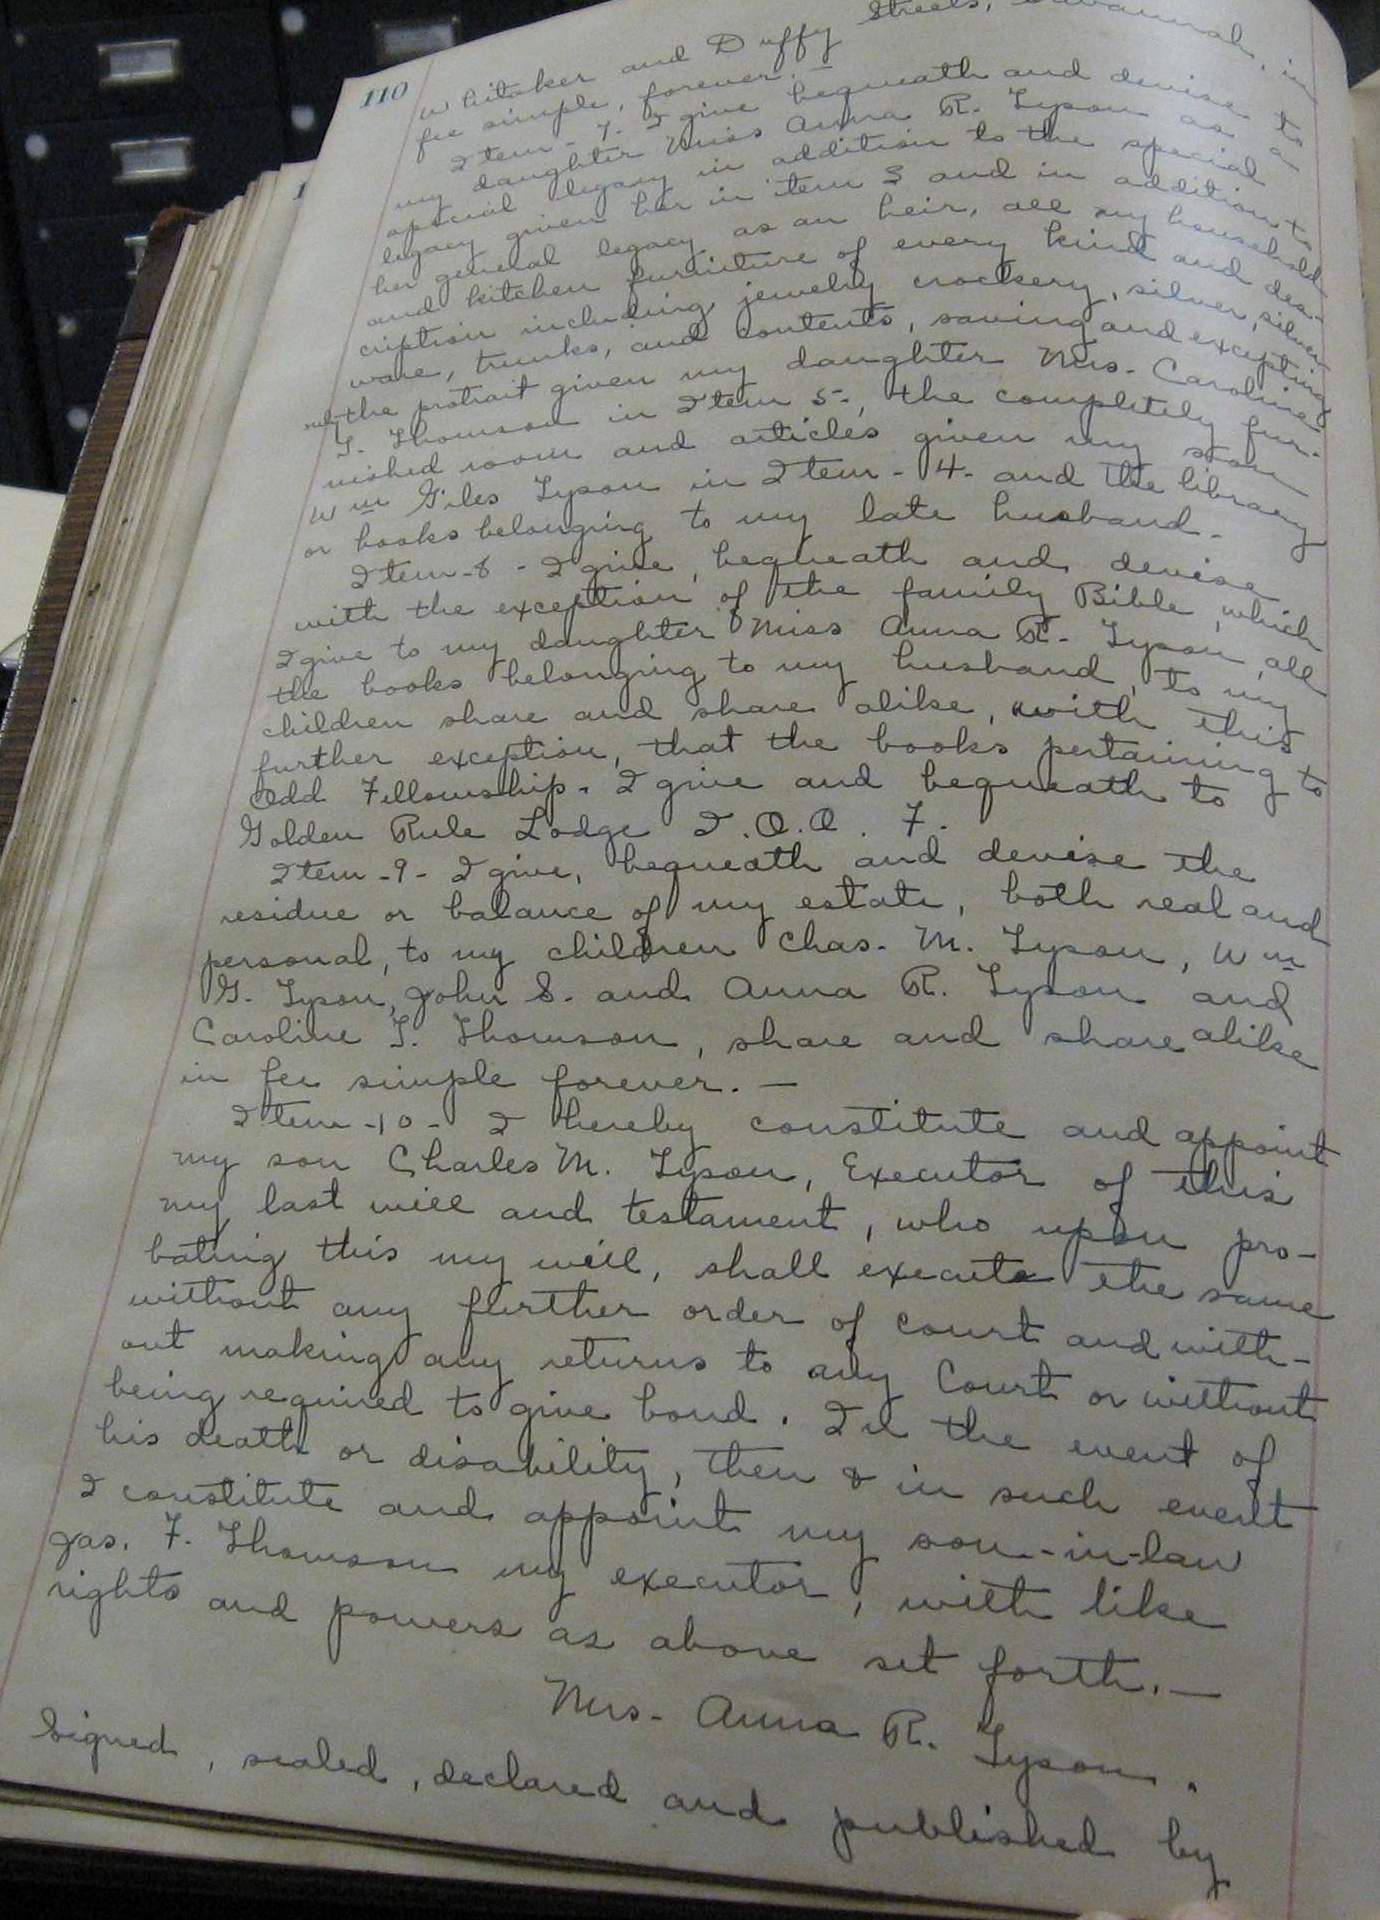 110
Whitaker and Duffy Streets, Savannah, in
fee simple, forever. —
Item - 7. I give bequeath and devise to
my daughter Miss Anna R. Tyson as a
special legacy in addition to the special
legacy given her in item 3 and in addition to
her general legacy as an heir, all my household
and kitchen furniture of every kind and des-
cription including jewelry crockery, silver, silver
ware, trunks, and contents, saving and excepting
only the protrait given my daughter Mrs. Caroline
T. Thomson in Item 5-, the completely fur-
nished room and articles given my son
Wm Giles Tyson in Item - 4 - and the library
or books belonging to my late husband -
Item - 8 - I give, bequeath and devise
with the exception of the family Bible, which
I give to my daughter Miss Anna R. Tyson, all
the books belonging to my husband, to my
children share and share alike, with this
further exception, that the books pertaining to
Odd Fellowship. I give and bequeath to
Golden Rule Lodge I. O. O. F.
Item - 9 - I give, bequeath and devise the
residue or balance of my estate, both real and
personal, to my children Chas. M. Tyson, Wm
G. Tyson, John S. and Anna R. Tyson and
Caroline T. Thomson, share and share alike
in fee simple forever. —
Item - 10 - I hereby constitute and appoint
my son Charles M. Tyson, Executor of this
my last will and testament, who upon pro-
bating this my will, shall execute the same
without any further order of court and with-
out making any returns to any Court or without
being required to give bond. In the event of
his death or disability, then & in such event
I constitute and appoint my son-in-law
Jas. F. Thomson my executor, with like
rights and powers as above set forth. —
Mrs. Anna R. Tyson.
Signed, sealed, declared and published by